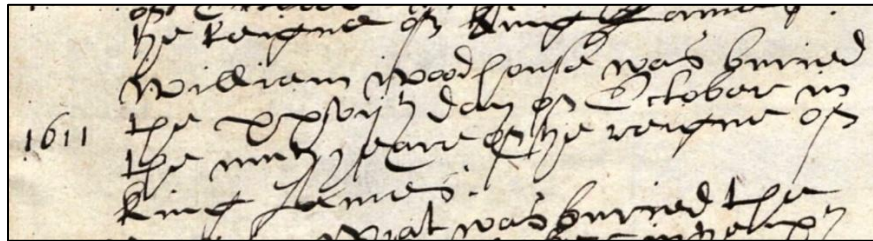 the reigne of King James.
William woodhouse was buried
the day of October in
1611 the ninth yeare of the reigne of
King James.
was buried the